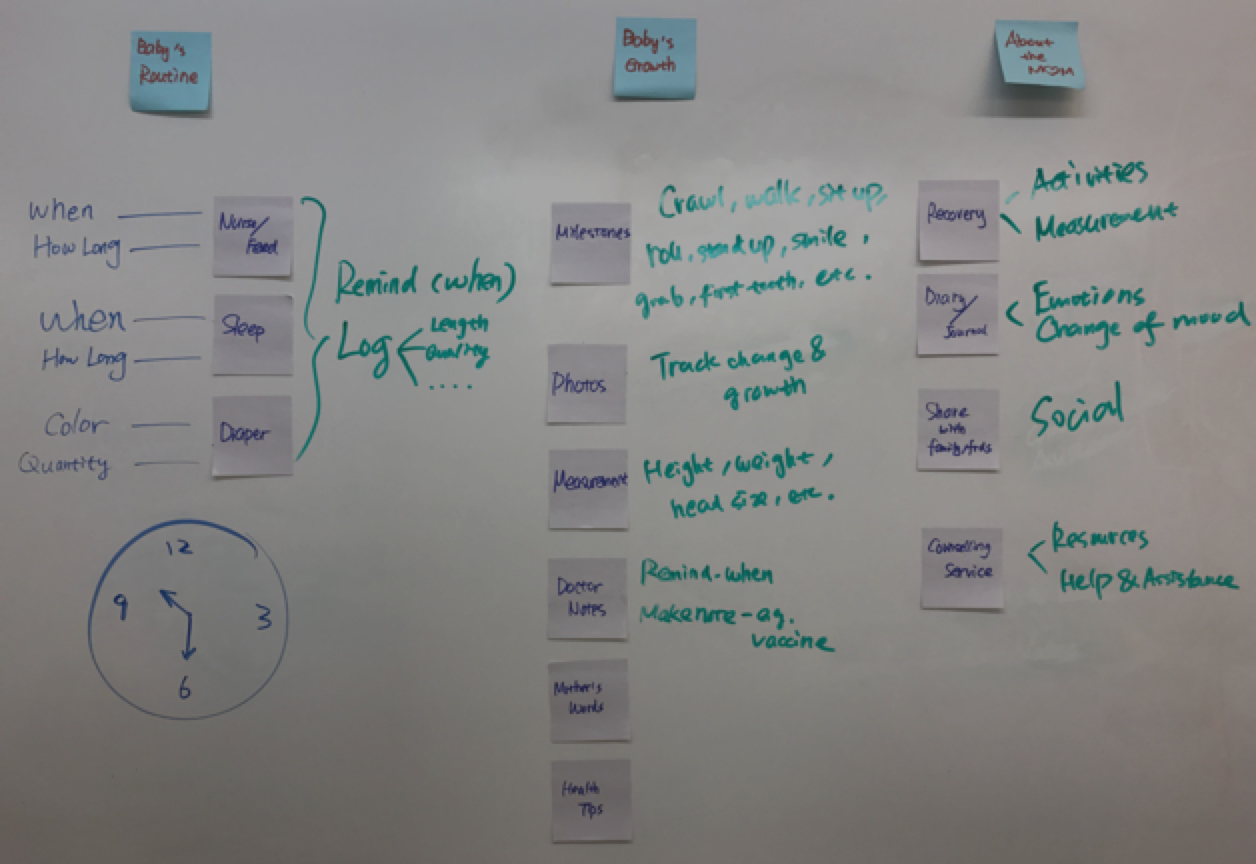 Baby's
Routine
when
How Long
Nurse/
Feed
when
How Long
Sleep
Color
Quantity
Diaper
Remind (when)
Log
Length
Quality
....
12
9
3
6
Baby's
Growth
Milestones
Crawl, walk, sit up,
roll, stand up, smile,
grab, first tooth, etc.
Photos
Track change &
growth
Measurement
Height, weight,
head size, etc.
Doctor
Notes
Remind-when
Make note - eg.
vaccine
Mother's
Words
Health
Tips
About
the
Recovery
Activities
Measurement
Diary/
Journal
Emotions
Change of mood
Share
with
family/frds
Social
Counselling
Service
Resources
Help & Assistance